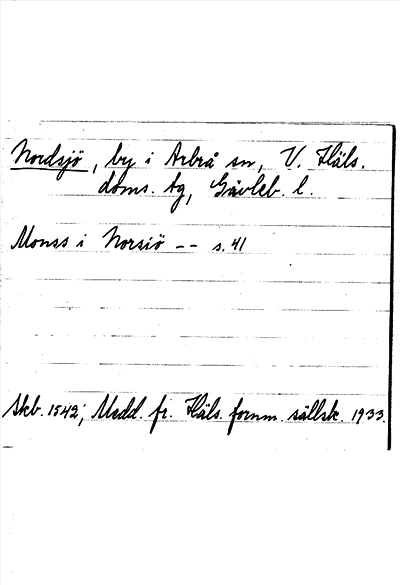 Nordsjö, by i Arbrå sn, V. Häls.
doms. tg, Gävleb. l.
Monss i Norsiö -- s. 41
Skb. 1542; Medd. fr. Häls. fornm. sällsk. 1933.